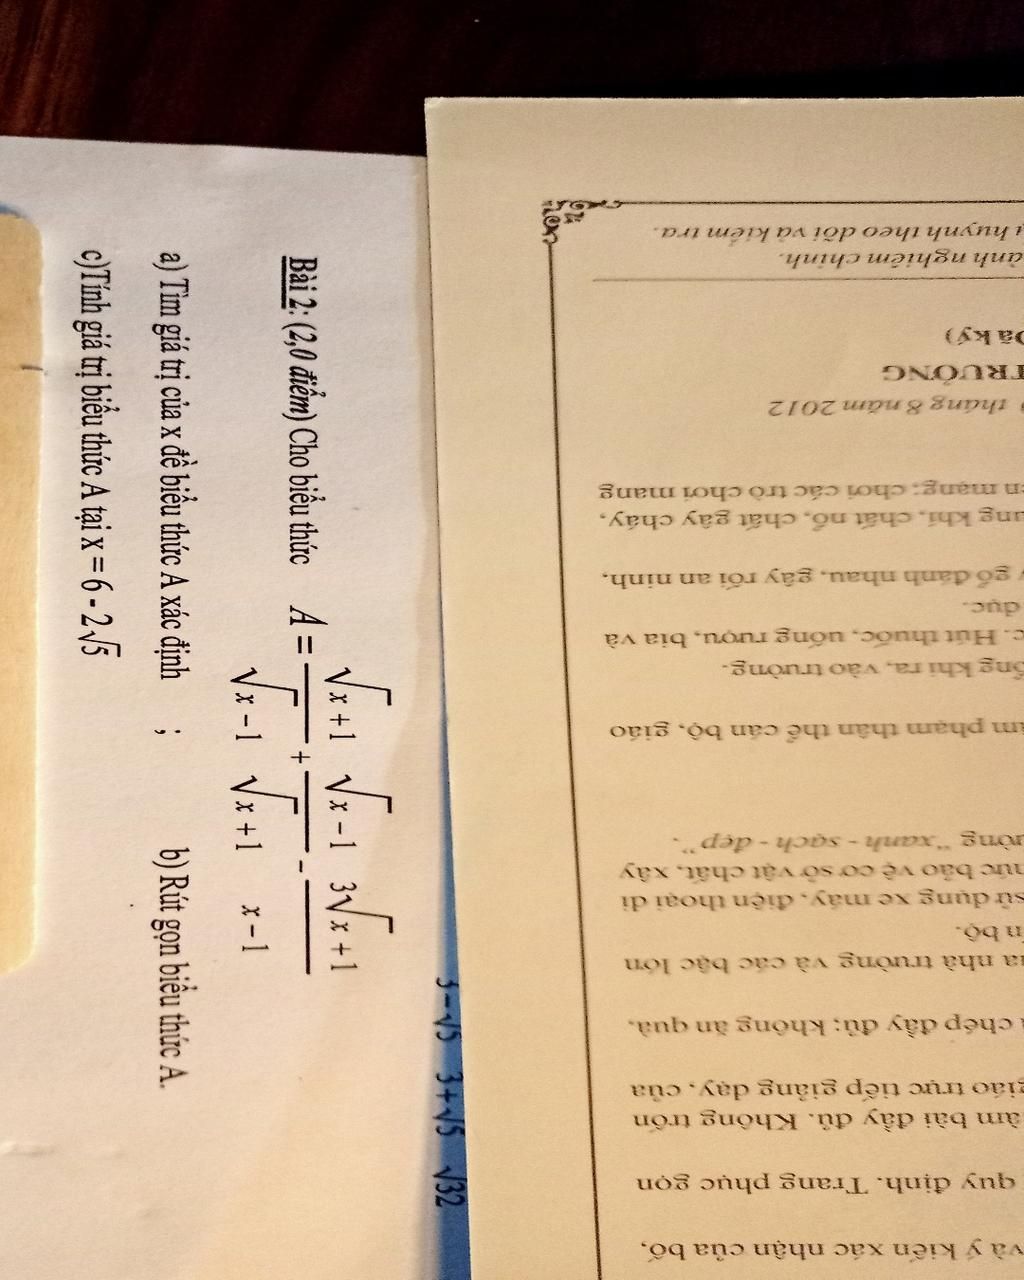 Bài 2: (2,0 điểm) Cho biểu thức A = \frac{\sqrt{x}+1}{\sqrt{x}-1} + \frac{\sqrt{x}-1}{\sqrt{x}+1} - \frac{3\sqrt{x}+1}{x-1}
a) Tìm giá trị của x để biểu thức A xác định ; b) Rút gọn biểu thức A.
c)Tính giá trị biểu thức A tại x = 6 - 2√5
3-√5 3+√5 √32
và ý kiến xác nhận của bố,
quy định. Trang phục gọn
làm bài đầy đủ. Không trốn
giáo trực tiếp giảng dạy, của
chép đầy đủ; không ăn quà,
nhà trường và các bậc lớn
bộ.
sử dụng xe máy, điện thoại di
bảo vệ cơ sở vật chất, xây
"xanh - sạch - đẹp".
phạm thân thể cán bộ, giáo
khi ra, vào trường.
Hút thuốc, uống rượu, bia và
dục.
gỗ đánh nhau, gây rối an ninh,
khí, chất nổ, chất gây cháy,
mạng; chơi các trò chơi mang
tháng 8 năm 2012
TRƯỞNG
Đã ký)
nghiêm chỉnh.
huynh theo dõi và kiểm tra.